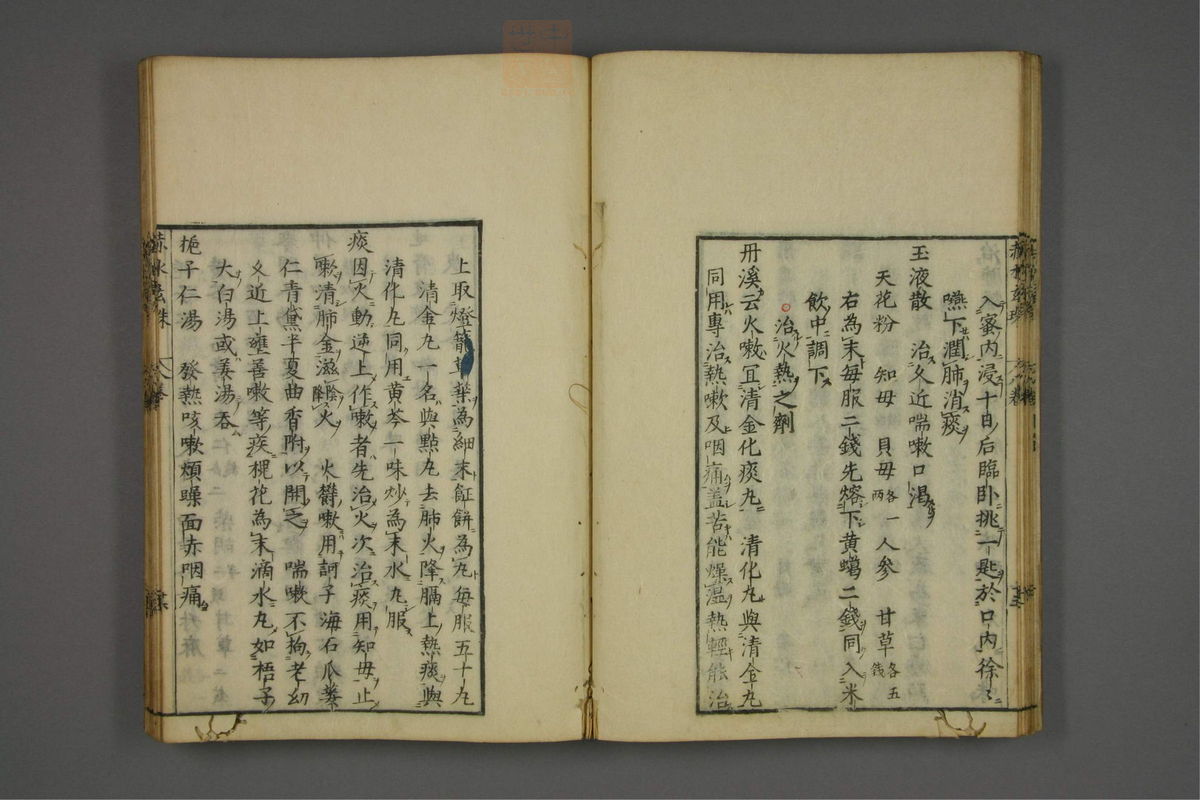 入蜜内浸十日后臨卧挑一匙於口内徐〻
嚥下潤肺消痰
玉液散 治久近喘嗽口渇
天花粉 知母 貝母各一两 人参 甘草各五錢
右為末每服二錢先熔下黄蝎二錢同入米
飲中調下
治火熱之劑
丹溪云火嗽宜清金化痰丸 清化丸與清金丸
同用專治熱嗽及咽痛盖苦能燥湿熱輕能治
上取燈籠草葉為細末飣餅為丸每服五十丸
清金丸一名與點丸去肺火降膈上熱痰與
清化丸同用黄芩一味炒為末水丸服
痰因火動逆上作嗽者先治火次治痰用知母止
嗽清肺金滋陰降火 火欝嗽用訶子海石瓜蒌
仁青黛半夏曲香附以開之 喘嗽不拘老幼
久近上壅善嗽等疾槐花為末滴水丸如梧子
大白湯或姜湯吞
梔子仁湯 發熱咳嗽煩躁面赤咽痛